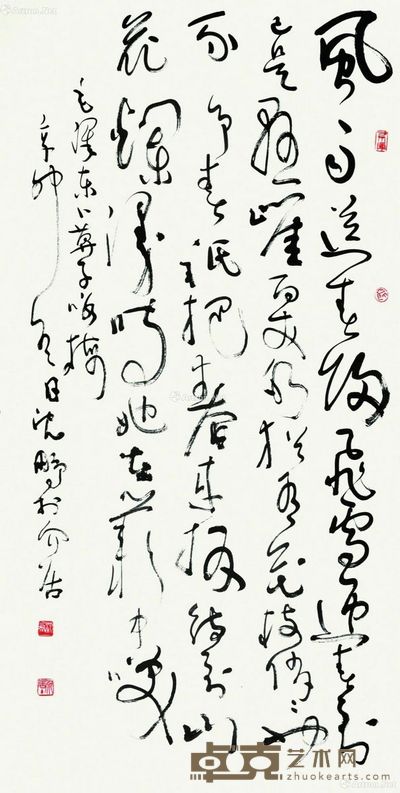 風雨送春歸飛雪迎春到
已是懸崖百丈冰猶有花枝俏〻也
不爭春祇把春來報待到山
花爛漫時她在叢中笑
毛澤東卜算子咏梅
辛卯冬日沈鵬於介居
卓克艺术网
zhuokearts.com